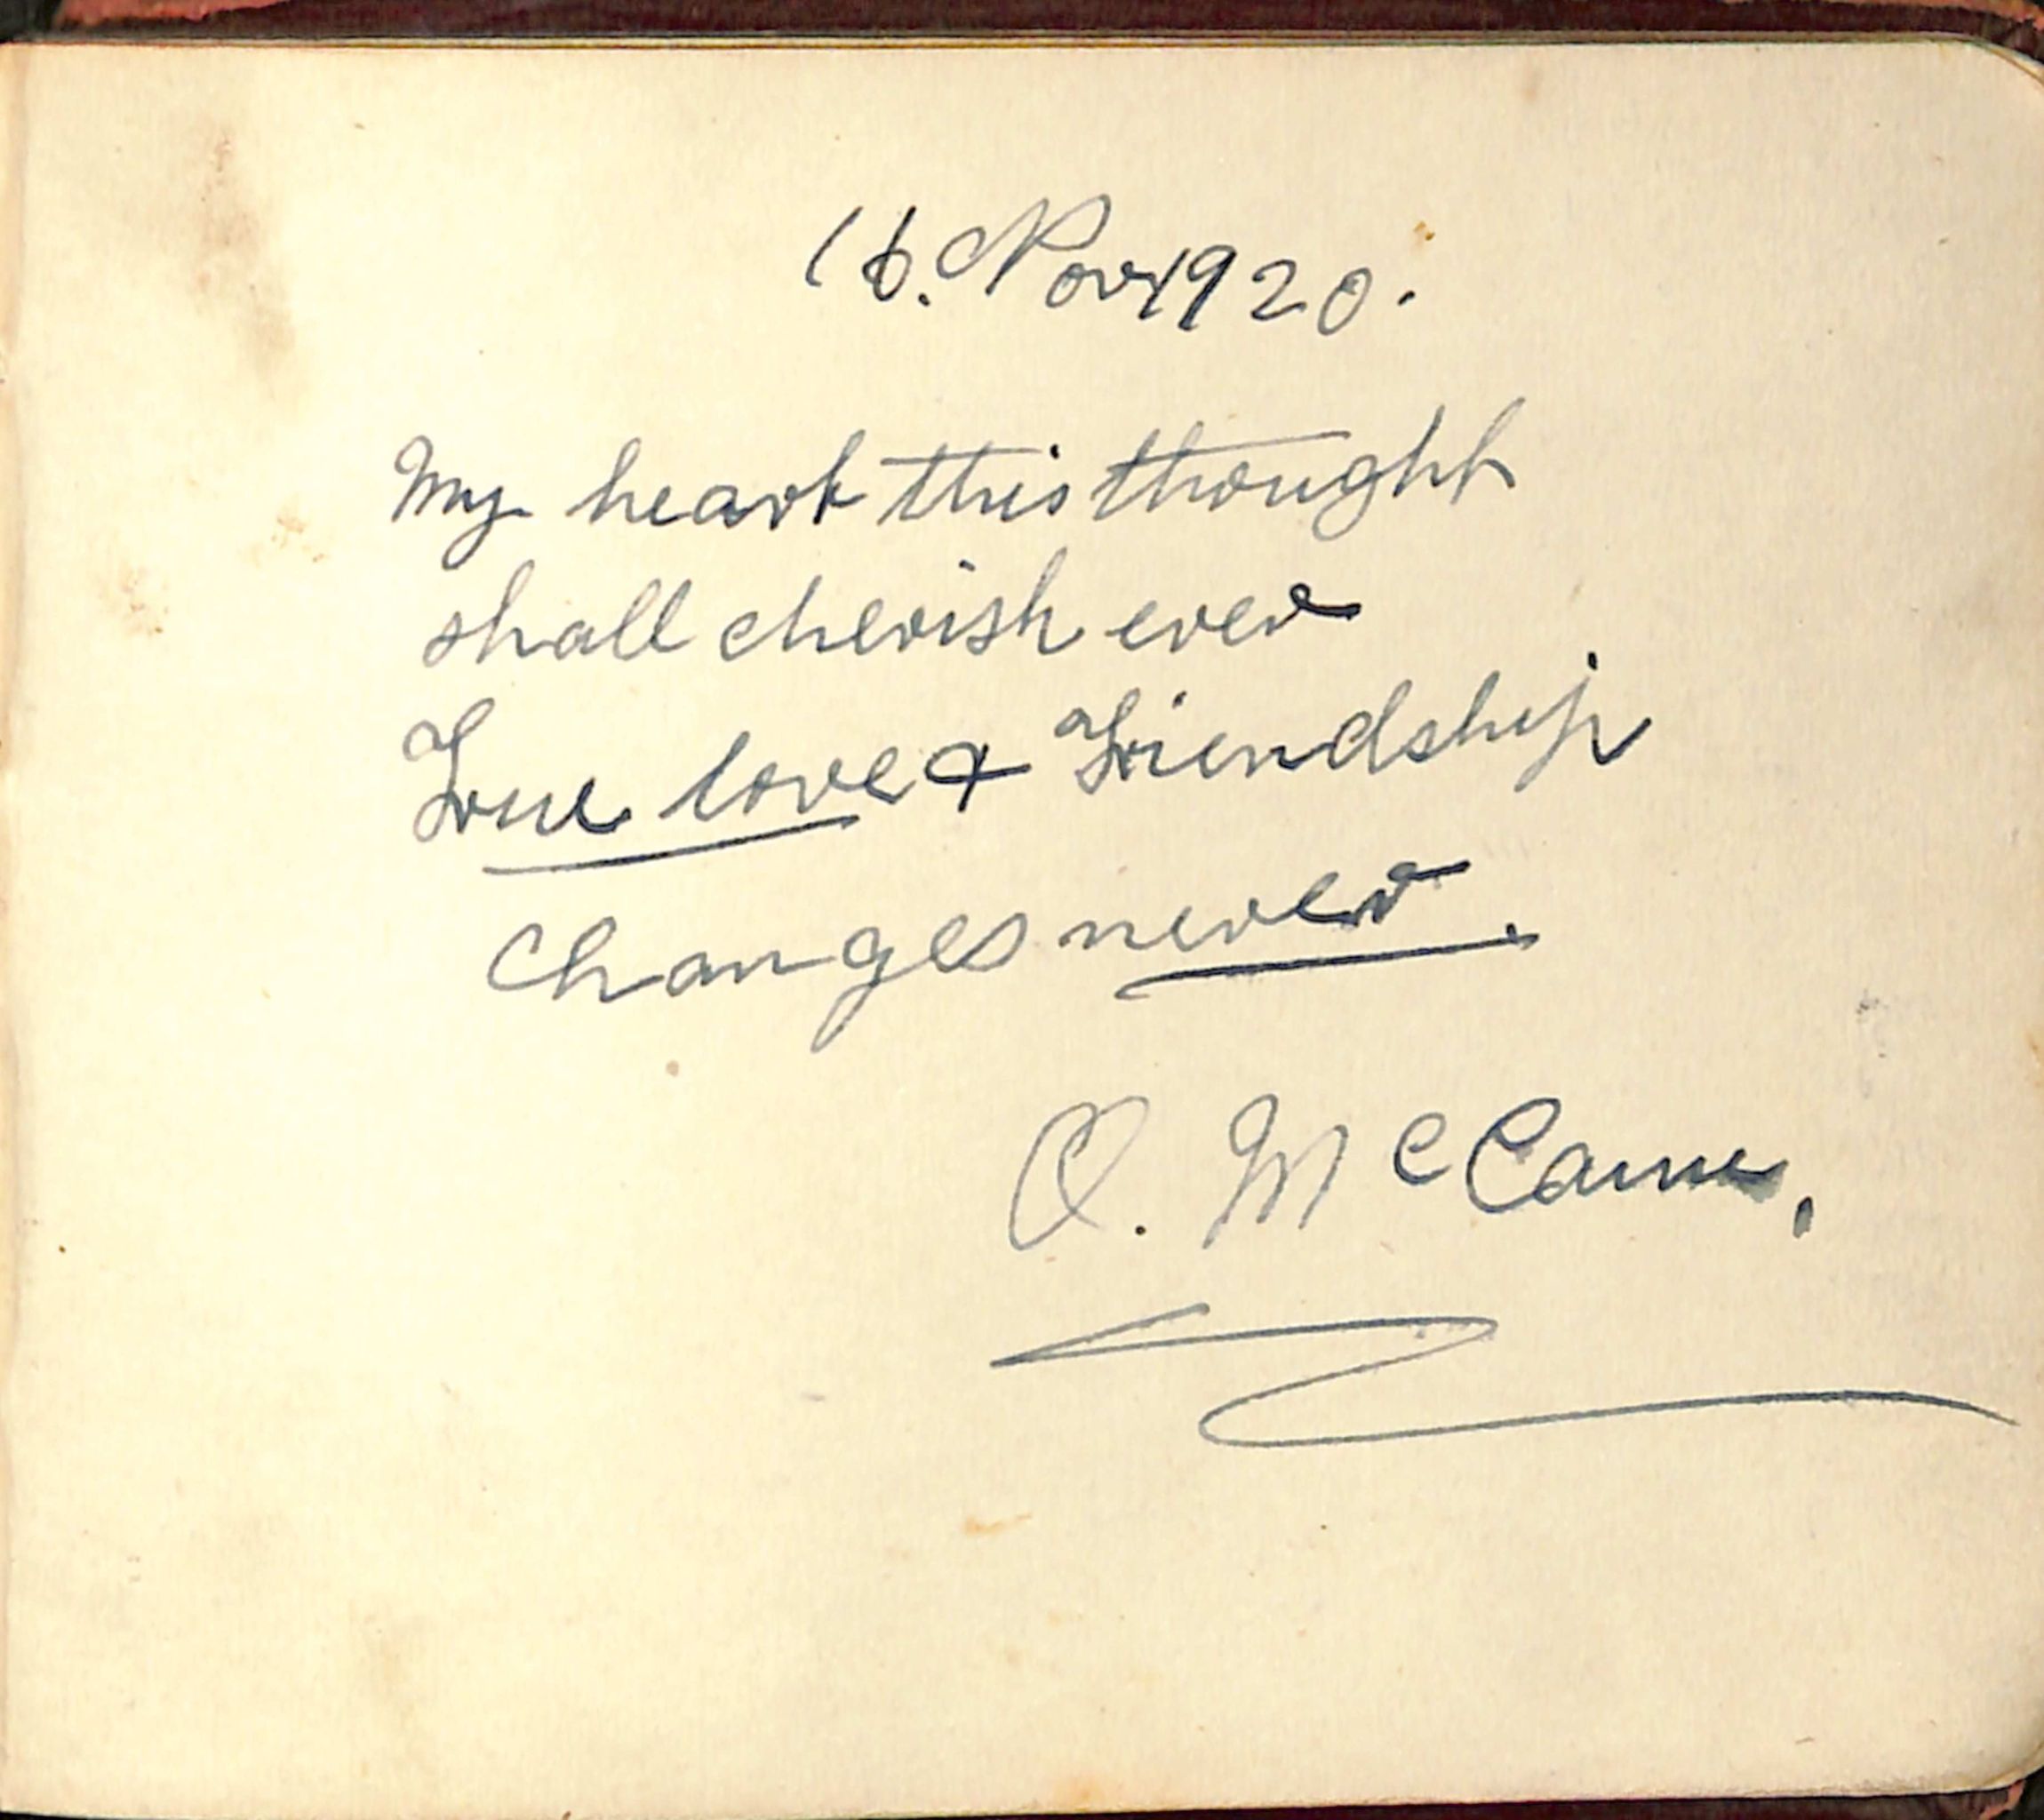 16. Nov 1920.
My heart this thought
shall cherish ever
True love & Friendship
Changes never.
McCann.